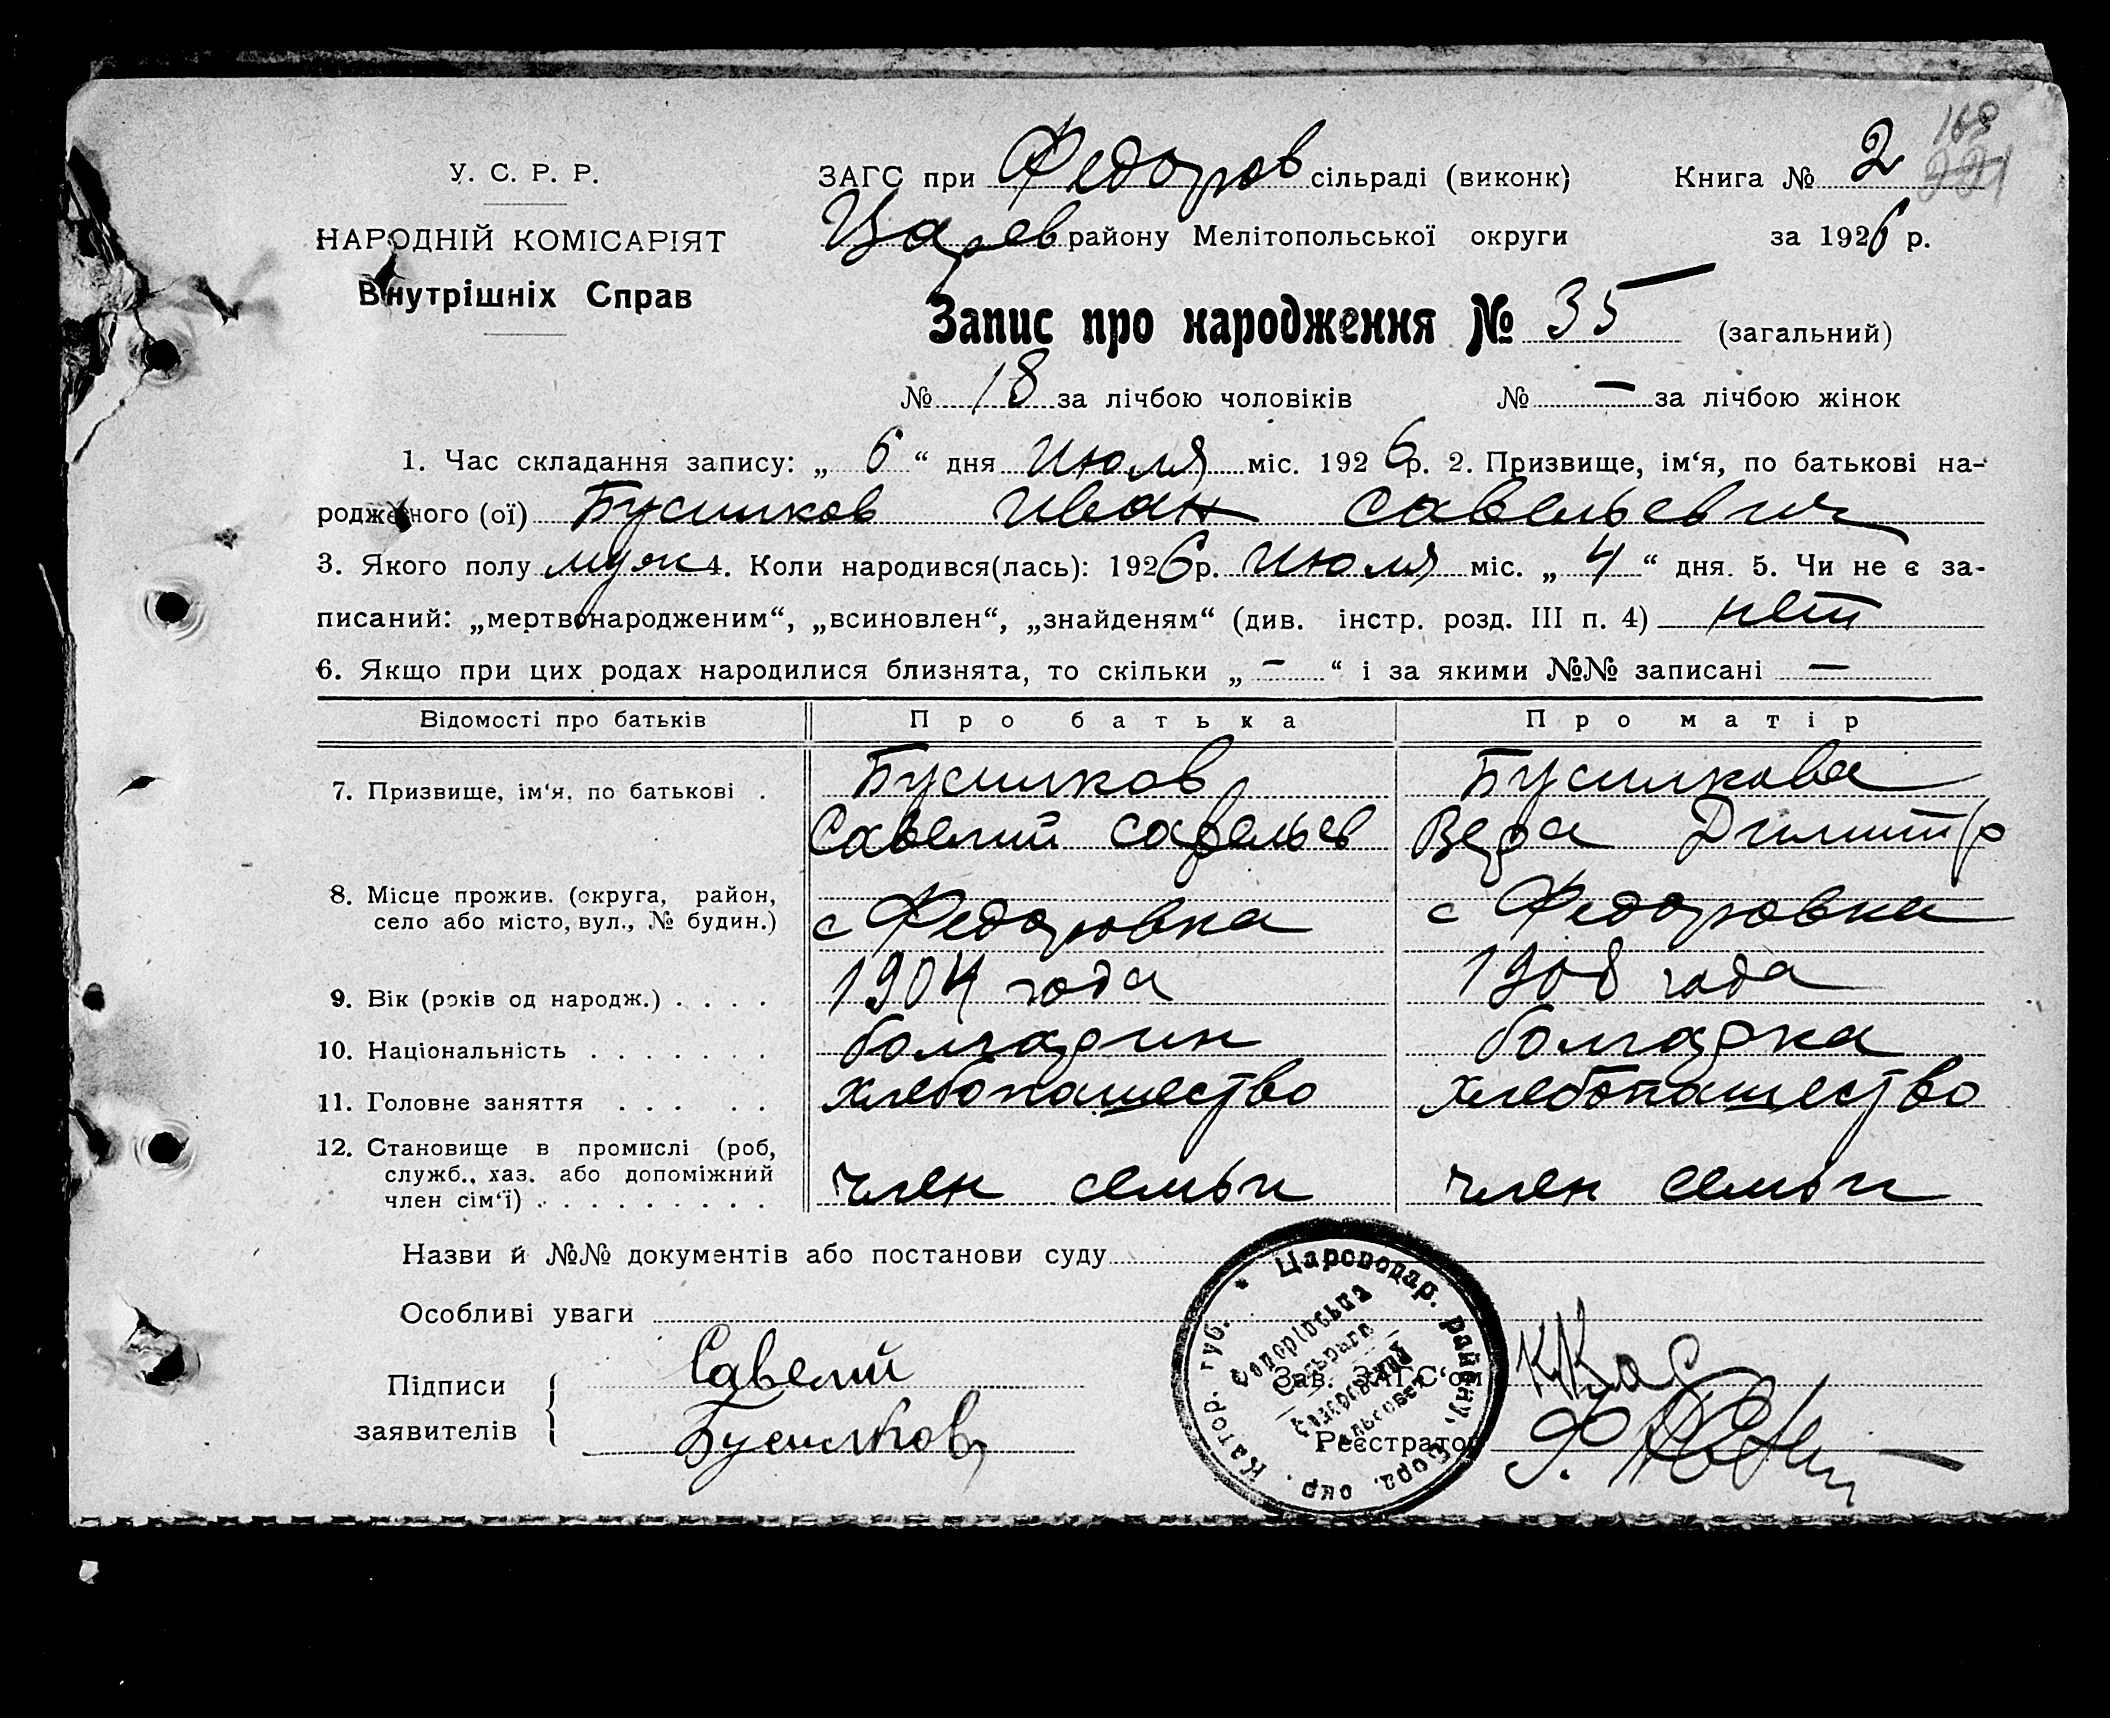 168
221
У. С. Р. Р.
НАРОДНІЙ КОМІСАРІЯТ
Внутрішніх Справ
ЗАГС при Федоров сільраді (виконк) Книга № 2
Царев району Мелітопольської округи за 1926 р.
Запис про народження № 35 (загальний)
№ 18 за лічбою чоловіків № — за лічбою жінок
1. Час складання запису: „ 6 “ дня Июля міс. 1926 р. 2. Призвище, ім‘я, по батькові на-
родженого (ої) Бусилков Иван Савельевич
3. Якого полу муж 4. Коли народився(лась): 1926 р. Июля міс. „ 4 “ дня. 5. Чи не є за-
писаний: „мертвонародженим“, „всиновлен“, „знайденям“ (див. інстр. розд. III п. 4) нет
6. Якщо при цих родах народилися близнята, то скільки „ — “ і за якими №№ записані —
Відомості про батьків Про батька Про матір
7. Призвище, ім‘я, по батькові . Бусилков Бусилкова
Савелий Савельев Вера Димитр
8. Місце прожив. (округа, район,
село або місто, вул., № будин.) с Федоровка с Федоровка
9. Вік (років од народж.) . . . . 1904 года 1908 года
10. Національність . . . . . . . болгарин болгарка
11. Головне заняття . . . . . хлебопашество хлебопашество
12. Становище в промислі (роб,
служб., хаз. або допоміжний
член сім‘ї) . . . . . . . . . . член семьи член семьи
Назви й №№ документів або постанови суду
Особливі уваги
Підписи
заявителів
Савелий
Бусилков
Зав. ЗАГС‘ом
Реєстратор